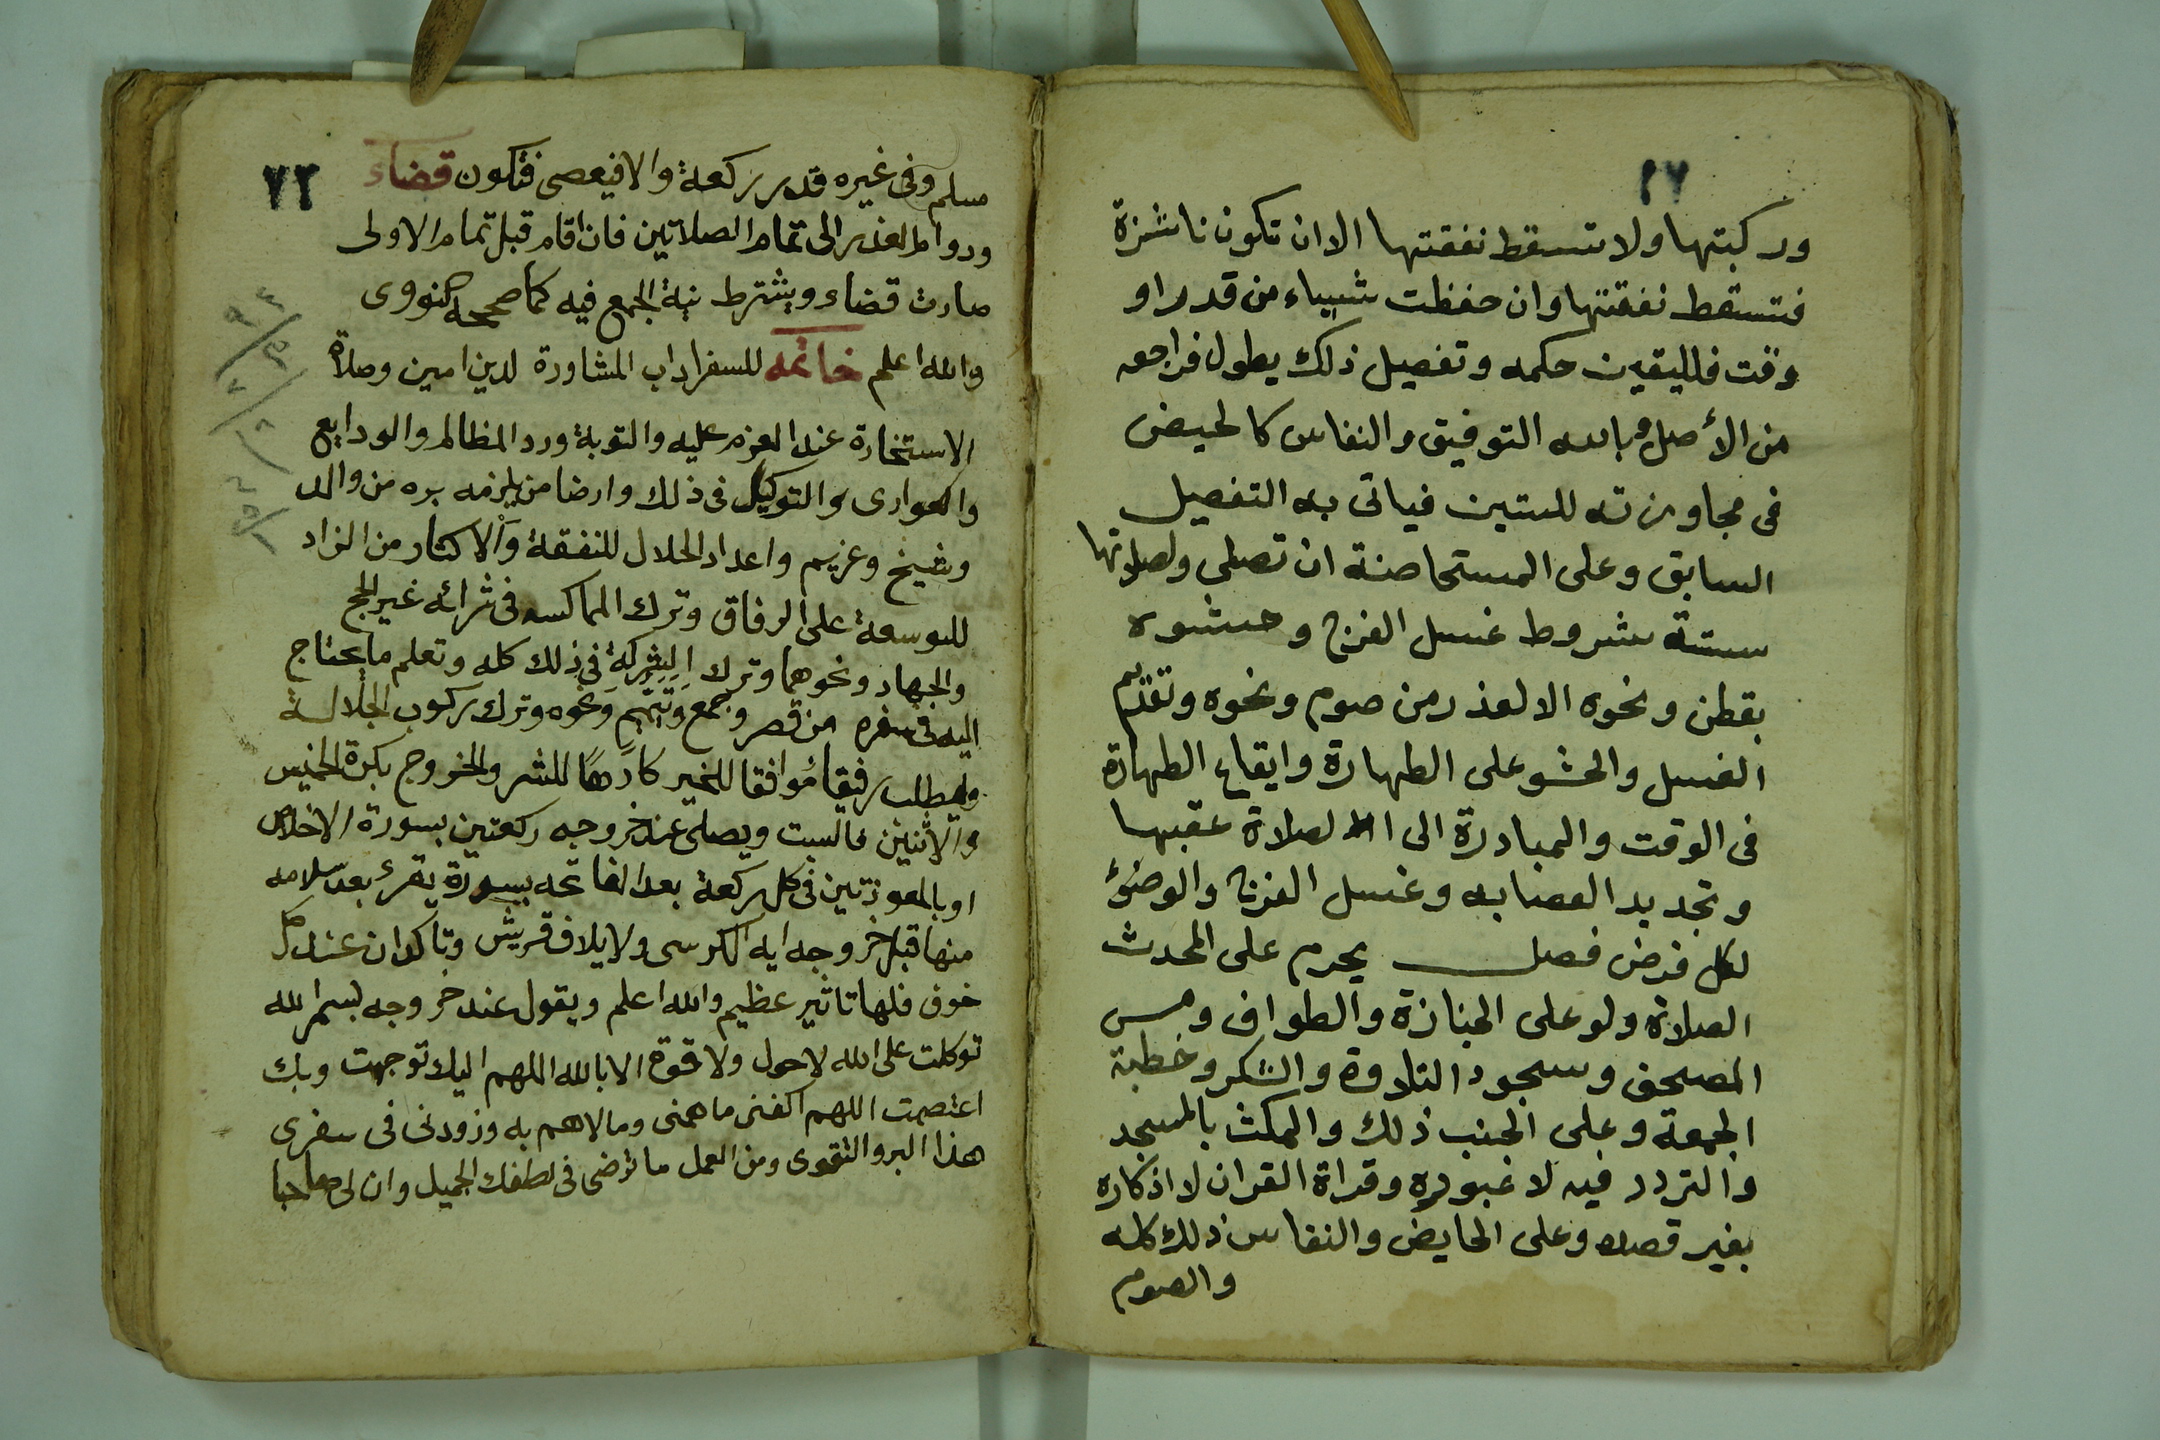 ٢٧
وركبتها ولا تسقط نفقتها الا ان تكون ناشزة
فتسقط نفقتها وان حفظت شيياء من قدر او
وقت فلليقين حكمه وتفصيل ذلك يطول فراجعه
من الأصل وبالله التوفيق والنفاس كالحيض
فى مجاوزته للستين فياتى به التفصيل
السابق وعلى المستحاضة ان تصلي ولصلاتها
ستة شروط غسل الفرج وحشوه
بقطن ونحوه الا لعذر من صوم ونحوه وتقديم
الغسل والحشو على الطهارة وايقاع الطهارة
فى الوقت والمبادرة الى الصلاة عقبها
وتجديد العصابه وغسل الفرج والوضؤ
لكل فرض فصل يحرم على المحدث
الصلاة ولو على الجنازة والطواف ومس
المصحف وسجود التلاوة والشكر وخطبة
الجمعة وعلى الجنب ذلك والمكث بالمسجد
والتردد فيه لا عبوره وقراة القران لا اذكاره
بغير قصده وعلى الحايض والنفاس ذلك كله
والصوم
٧٢
مسلم وفى غيره قدر ركعة والا فيعصى فتكون قضاء
ودوام العذر الى تمام الصلاتين فان اقام قبل تمام الاولى
صارت قضاء ويشترط نية الجمع فيه كما صححه النووى
والله اعلم خاتمه للسفر اداب المشاورة لدين امين وصلاة
الاستخارة عند العزم عليه والتوبة ورد المظالم والودايع
والعوارى والتوكيل فى ذلك وارضا من يلزمه بره من والد
وشيخ وغريم واعداد الحلال للنفقة والاكثار من الزاد
للتوسعة على الرفاق وترك المماكسه فى شرائه غير الحج
والجهاد ونحوهما وترك الشركة في ذلك كله وتعلم ما يحتاج
اليه فى سفره من قصر وجمع وتيمم ونحوه وترك ركوب الجلالة
وليطلب رفيقا موافقا للخير كارها للشر والخروج بكرة الخميس
والاثنين فالسبت ويصلى عند خروجه ركعتين بسورة الاخلاص
او بالمعوذتين فى كل ركعة بعد الفاتحه بسورة يقرء بعد سلامه
منها قبل خروجه ايه الكرسى ولايلاف قريش وتاكدان عند كل
خوف فلها تاثير عظيم والله اعلم ويقول عند خروجه بسم الله
توكلت على الله لا حول ولا قوة الا بالله اللهم اليك توجهت وبك
اعتصمت اللهم اكفنى ما همنى وما لا اهم به وزودنى فى سفرى
هذا البر والتقوى ومن العمل ما ترضى فى لطفك الجميل وان لى صاحبا